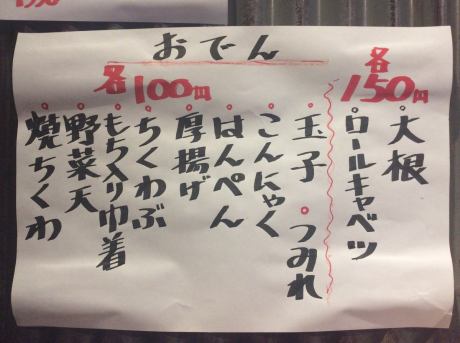 おでん
各150円
大根
ロールキャベツ
各100円
玉子 つみれ
こんにゃく
はんぺん
厚揚げ
ちくわぶ
もち入り巾着
野菜天
焼ちくわ